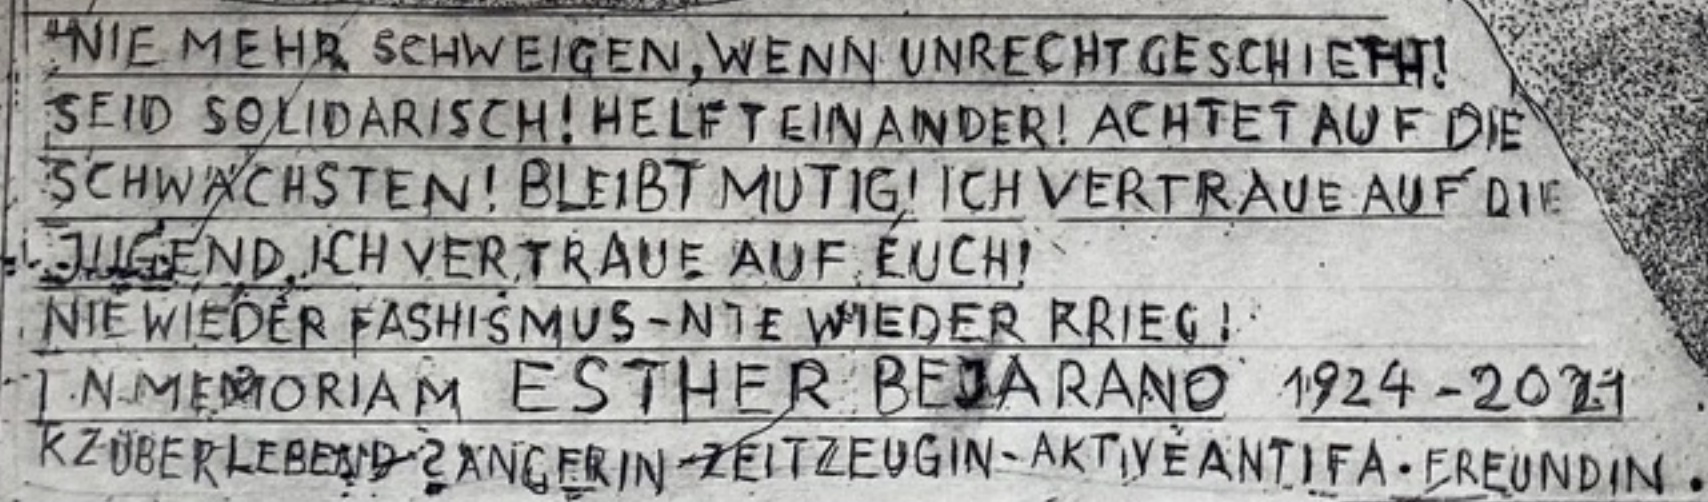 "NIE MEHR SCHWEIGEN, WENN UNRECHT GESCHIEHT!
SEID SOLIDARISCH! HELFT EINANDER! ACHTET AUF DIE
SCHWÄCHSTEN! BLEIBT MUTIG! ICH VERTRAUE AUF DIE
JUGEND, ICH VERTRAUE AUF EUCH!
NIE WIEDER FASHISMUS - NIE WIEDER KRIEG!
IN MEMORIAM ESTHER BEJARANO 1924 - 2021
KZÜBERLEBEND - SÄNGERIN - ZEITZEUGIN - AKTIVE ANTIFA. FREUNDIN.